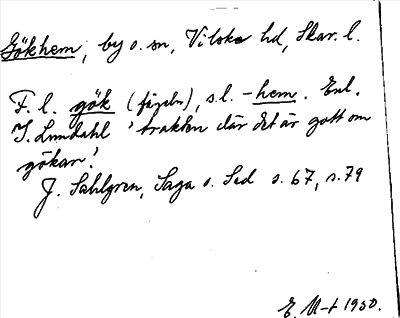 Gökhem, by o. sn, Vilske hd, Skar. l.
F. l. gök (fågeln), s.l. -hem. Enl.
I. Lundahl 'trakten där det är gott om
gökar'.
J. Sahlgren, Saga o. Sed s. 67, s. 79
E. M-t 1930.